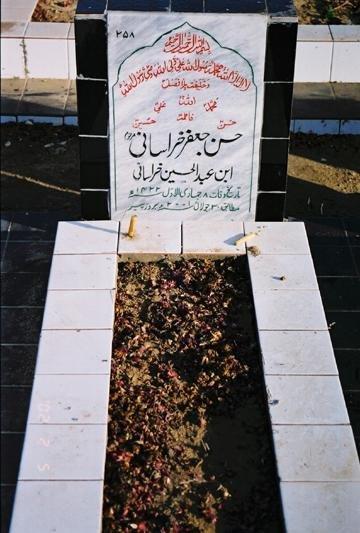 ۲۵۸
بسم اللہ الرحمن الرحیم
لا الہ الا اللہ محمد رسول اللہ علی ولی اللہ وصی رسول اللہ
وخلیفتہ بلا فصل
اللہ
محمد علی
فاطمہ
حسن حسین
حسن جعفر خراسانی
ابن عبد الحسین خراسانی
تاریخ وفات ۸ جمادی الاول ۱۴۲۲ھ
مطابق ۳۰ جولائی ۲۰۰۱ بروز پیر